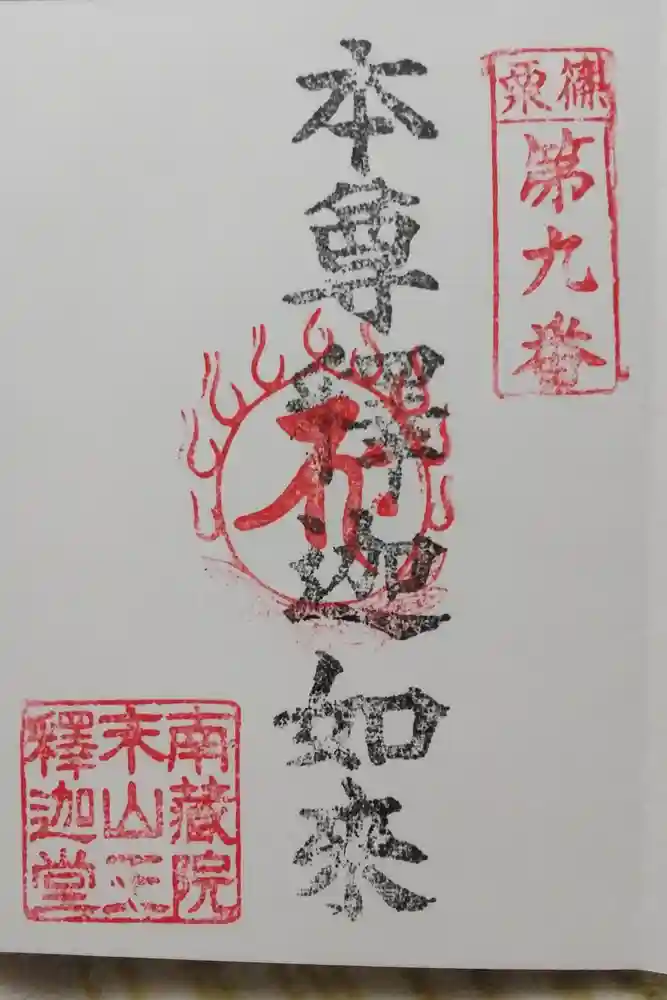 篠栗
第九番
本尊釋迦如來
南藏院
末山王
釋迦堂